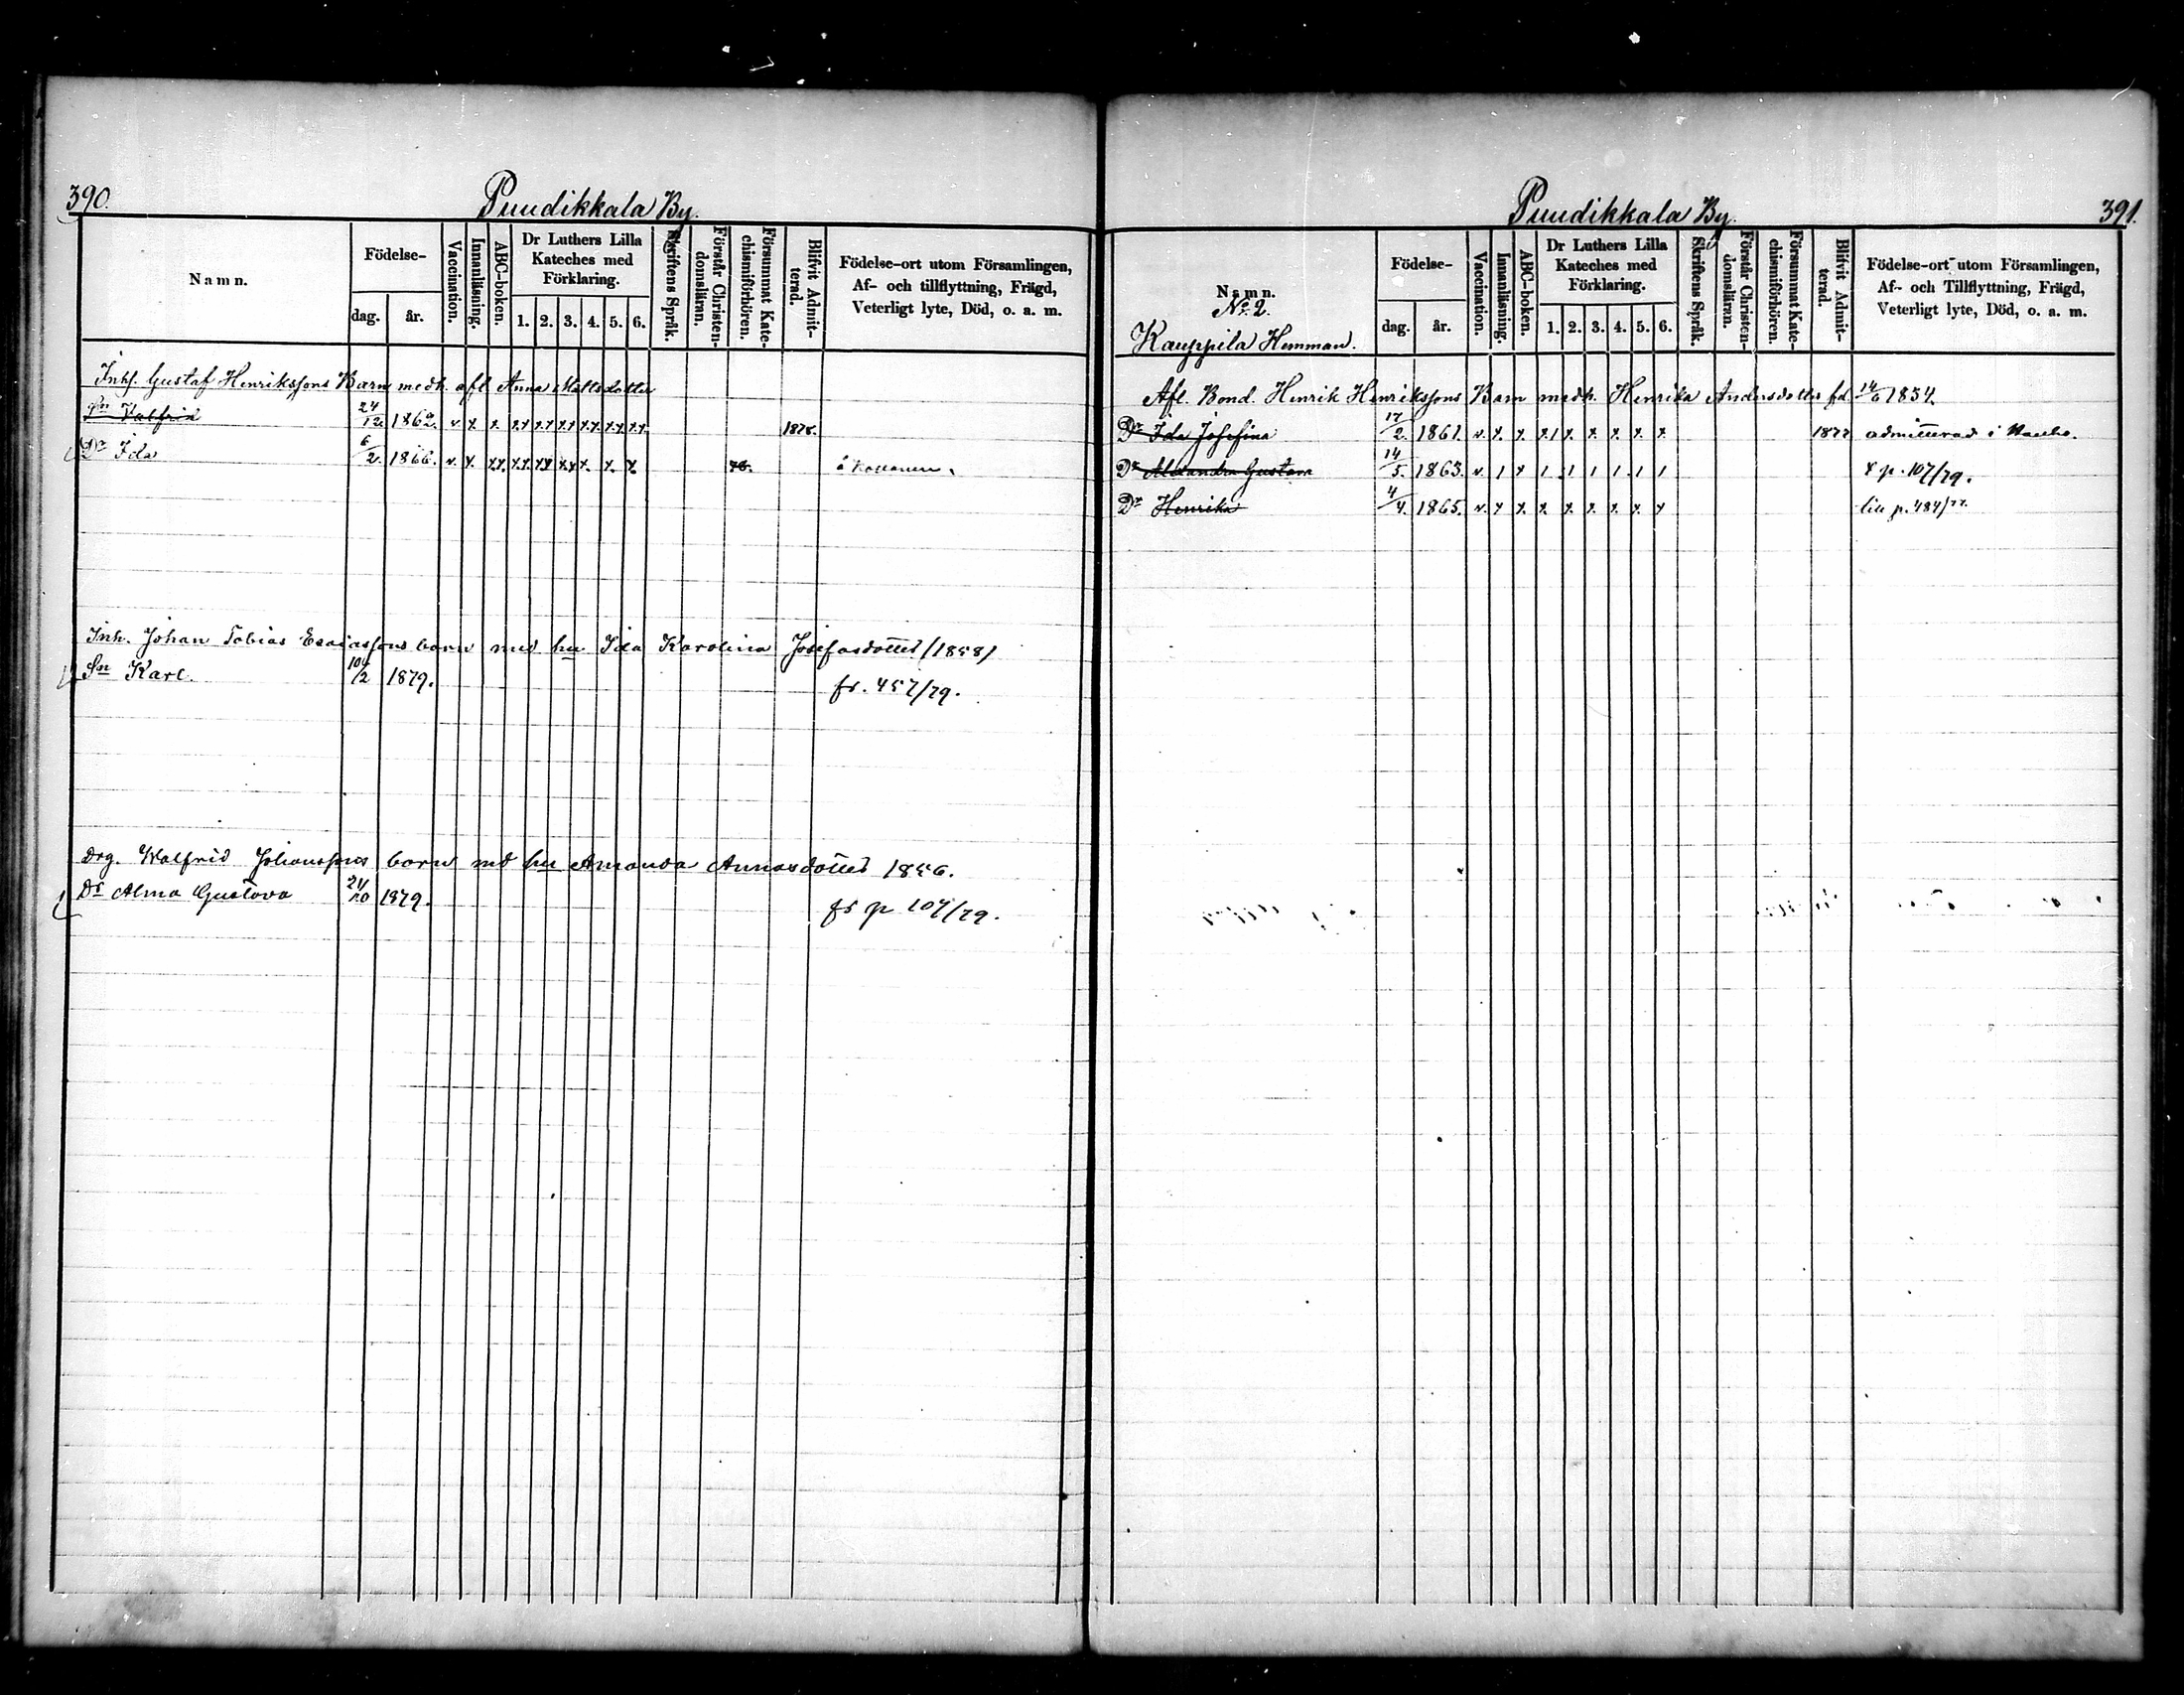 390.
Puudikkala By.
Namn.
Födelse-
dag.
år.
Vaccination.
Innanläsning.
ABC-boken.
Dr Luthers Lilla
Kateches med
Förklaring.
1. 2. 3. 4. 5. 6.
Skriftens Språk.
Förstår Christen-
domsläran.
Försummat Kate-
chismiförhören.
Blifvit Admit-
terad.
Födelse-ort utom Församlingen,
Af- och tillflyttning, Frägd,
Veterligt lyte, Död, o. a. m.
Inhs. Gustaf Henrikssons Barn medh. afl. Anna Mattsdotter
Sn Valfrid 24/12 1862. v. x x xx xx xx xx xx xx 1878.
Dr Ida 6/2. 1866. v. x xx xx xx xx x. x. x.
Inh. Johan Tobias Esaiassons barn med hu Ida Karolina Josefsdotter (1858)
Sn Karl. 10/2 1879. fr. 457/79.
Drg. Walfrid Johanssons barn md hu Amanda Annasdotter 1856.
Dr Alma Gustava 21/10 1879. fr p 107/79.
391.
Puudikkala By.
Namn.
No 2.
Kauppila Hemman.
Födelse-
dag.
år.
Vaccination.
Innanläsning.
ABC-boken.
Dr Luthers Lilla
Kateches med
Förklaring.
1. 2. 3. 4. 5. 6.
Skriftens Språk.
Förstår Christen-
domsläran.
Försummat Kate-
chismiförhören.
Blifvit Admit-
terad.
Födelse-ort utom Församlingen,
Af- och Tillflyttning, Frägd,
Veterligt lyte, Död, o. a. m.
Afl. Bond. Henrik Henrikssons Barn medh. Henrika Andersdotter fd. 14/6 1834
Dr Ida Josefina 17/2. 1861. v. x. x. x1 x. x. x. x. x. 1877 admitterad i Nauvo.
Dr Alexandra Gustava 14/5. 1863. v. 1 x 1 1 1 1 1 1 x p. 107/79.
Dr Henrika 4/4. 1865. v. x x. x. x. x. x. x. x till p. 484/77.